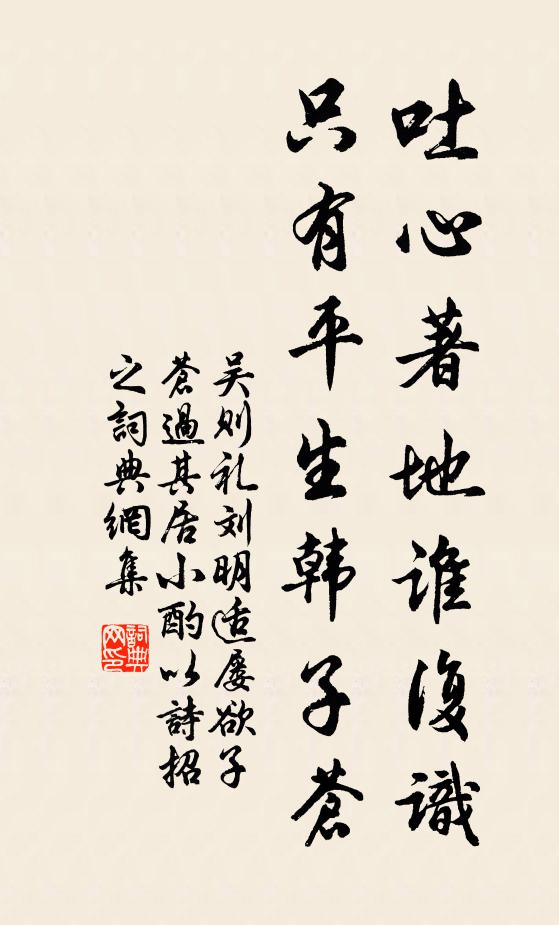 吐心著地谁復識
只有平生韩子蒼
吴则礼刘明适屡欲子
蒼過其居小酌以詩招
之詞典網集
詞典
网印